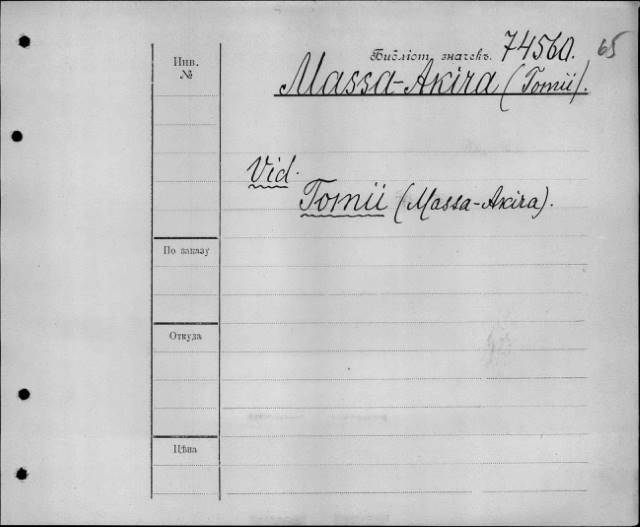 Инв.
№
Библіот. значекъ. 74560. 65
Massa-Akira (Tomii).
Vid.
Tomii (Massa-Akira).
По заказу
Откуда
Цѣна